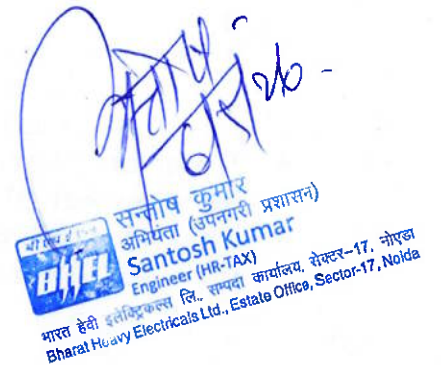 सन्तोष कुमार
अभियंता (उपनगरी प्रशासन)
Santosh Kumar
Engineer (HR-TAX)
बी एच ई एल
BHEL
भारत हेवी इलेक्ट्रिकल्स लि., सम्पदा कार्यालय, सेक्टर–17, नोएडा
Bharat Heavy Electricals Ltd., Estate Office, Sector-17, Noida